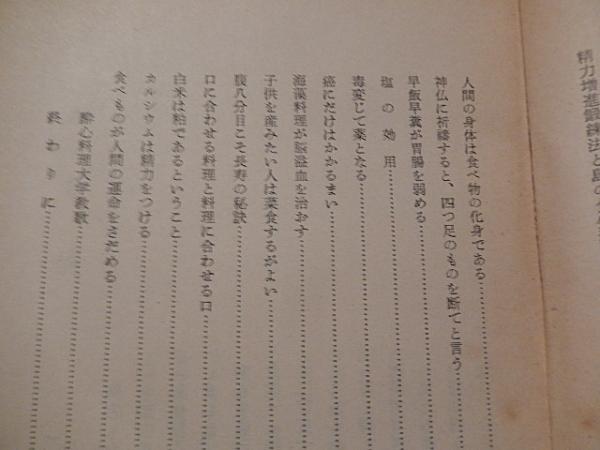 精力増進鍛錬法と
人間の身体は食べ物の化身である
神仏に祈禱すると、四つ足のものを断てと言う
早飯早糞が胃腸を弱める
塩の効用
毒変じて薬となる
癌にだけはかかるまい
海藻料理が脳溢血を治おす
子供を産みたい人は菜食するがよい
腹八分目こそ長寿の秘訣
口に合わせる料理と料理に合わせる口
白米は粕であるということ
カルシウムは精力をつける
食べものが人間の運命をさだめる
酔心料理大学教歌
終わりに